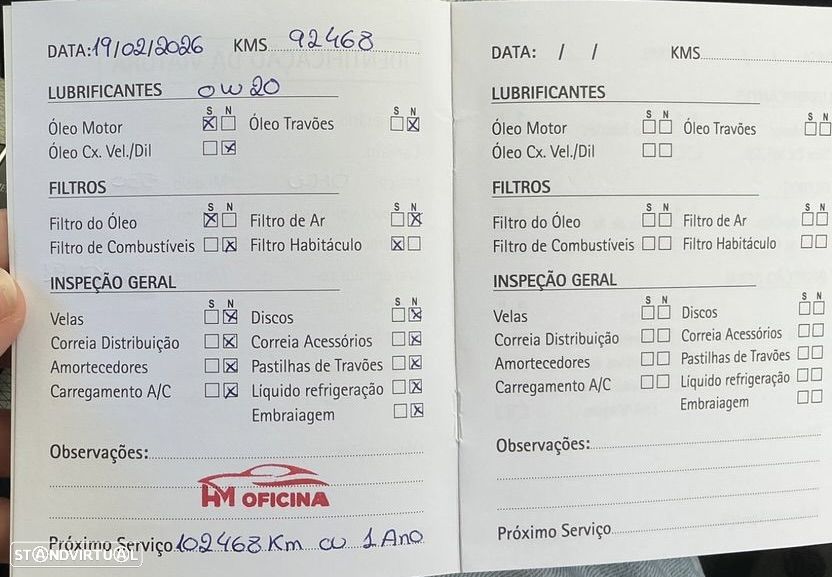 DATA:19/02/2026 KMS 92468
LUBRIFICANTES OW20
S N S N
Óleo Motor Óleo Travões
Óleo Cx. Vel./Dil
FILTROS
S N S N
Filtro do Óleo Filtro de Ar
Filtro de Combustíveis Filtro Habitáculo
INSPEÇÃO GERAL
S N S N
Velas Discos
Correia Distribuição Correia Acessórios
Amortecedores Pastilhas de Travões
Carregamento A/C Líquido refrigeração
Embraiagem
Observações:
HM OFICINA
Próximo Serviço 102468 Km ou 1 Ano
STANDVIRTUAL
DATA: / / KMS
LUBRIFICANTES
S N S N
Óleo Motor Óleo Travões
Óleo Cx. Vel./Dil
FILTROS
S N S N
Filtro do Óleo Filtro de Ar
Filtro de Combustíveis Filtro Habitáculo
INSPEÇÃO GERAL
S N S N
Velas Discos
Correia Distribuição Correia Acessórios
Amortecedores Pastilhas de Travões
Carregamento A/C Líquido refrigeração
Embraiagem
Observações:
Próximo Serviço